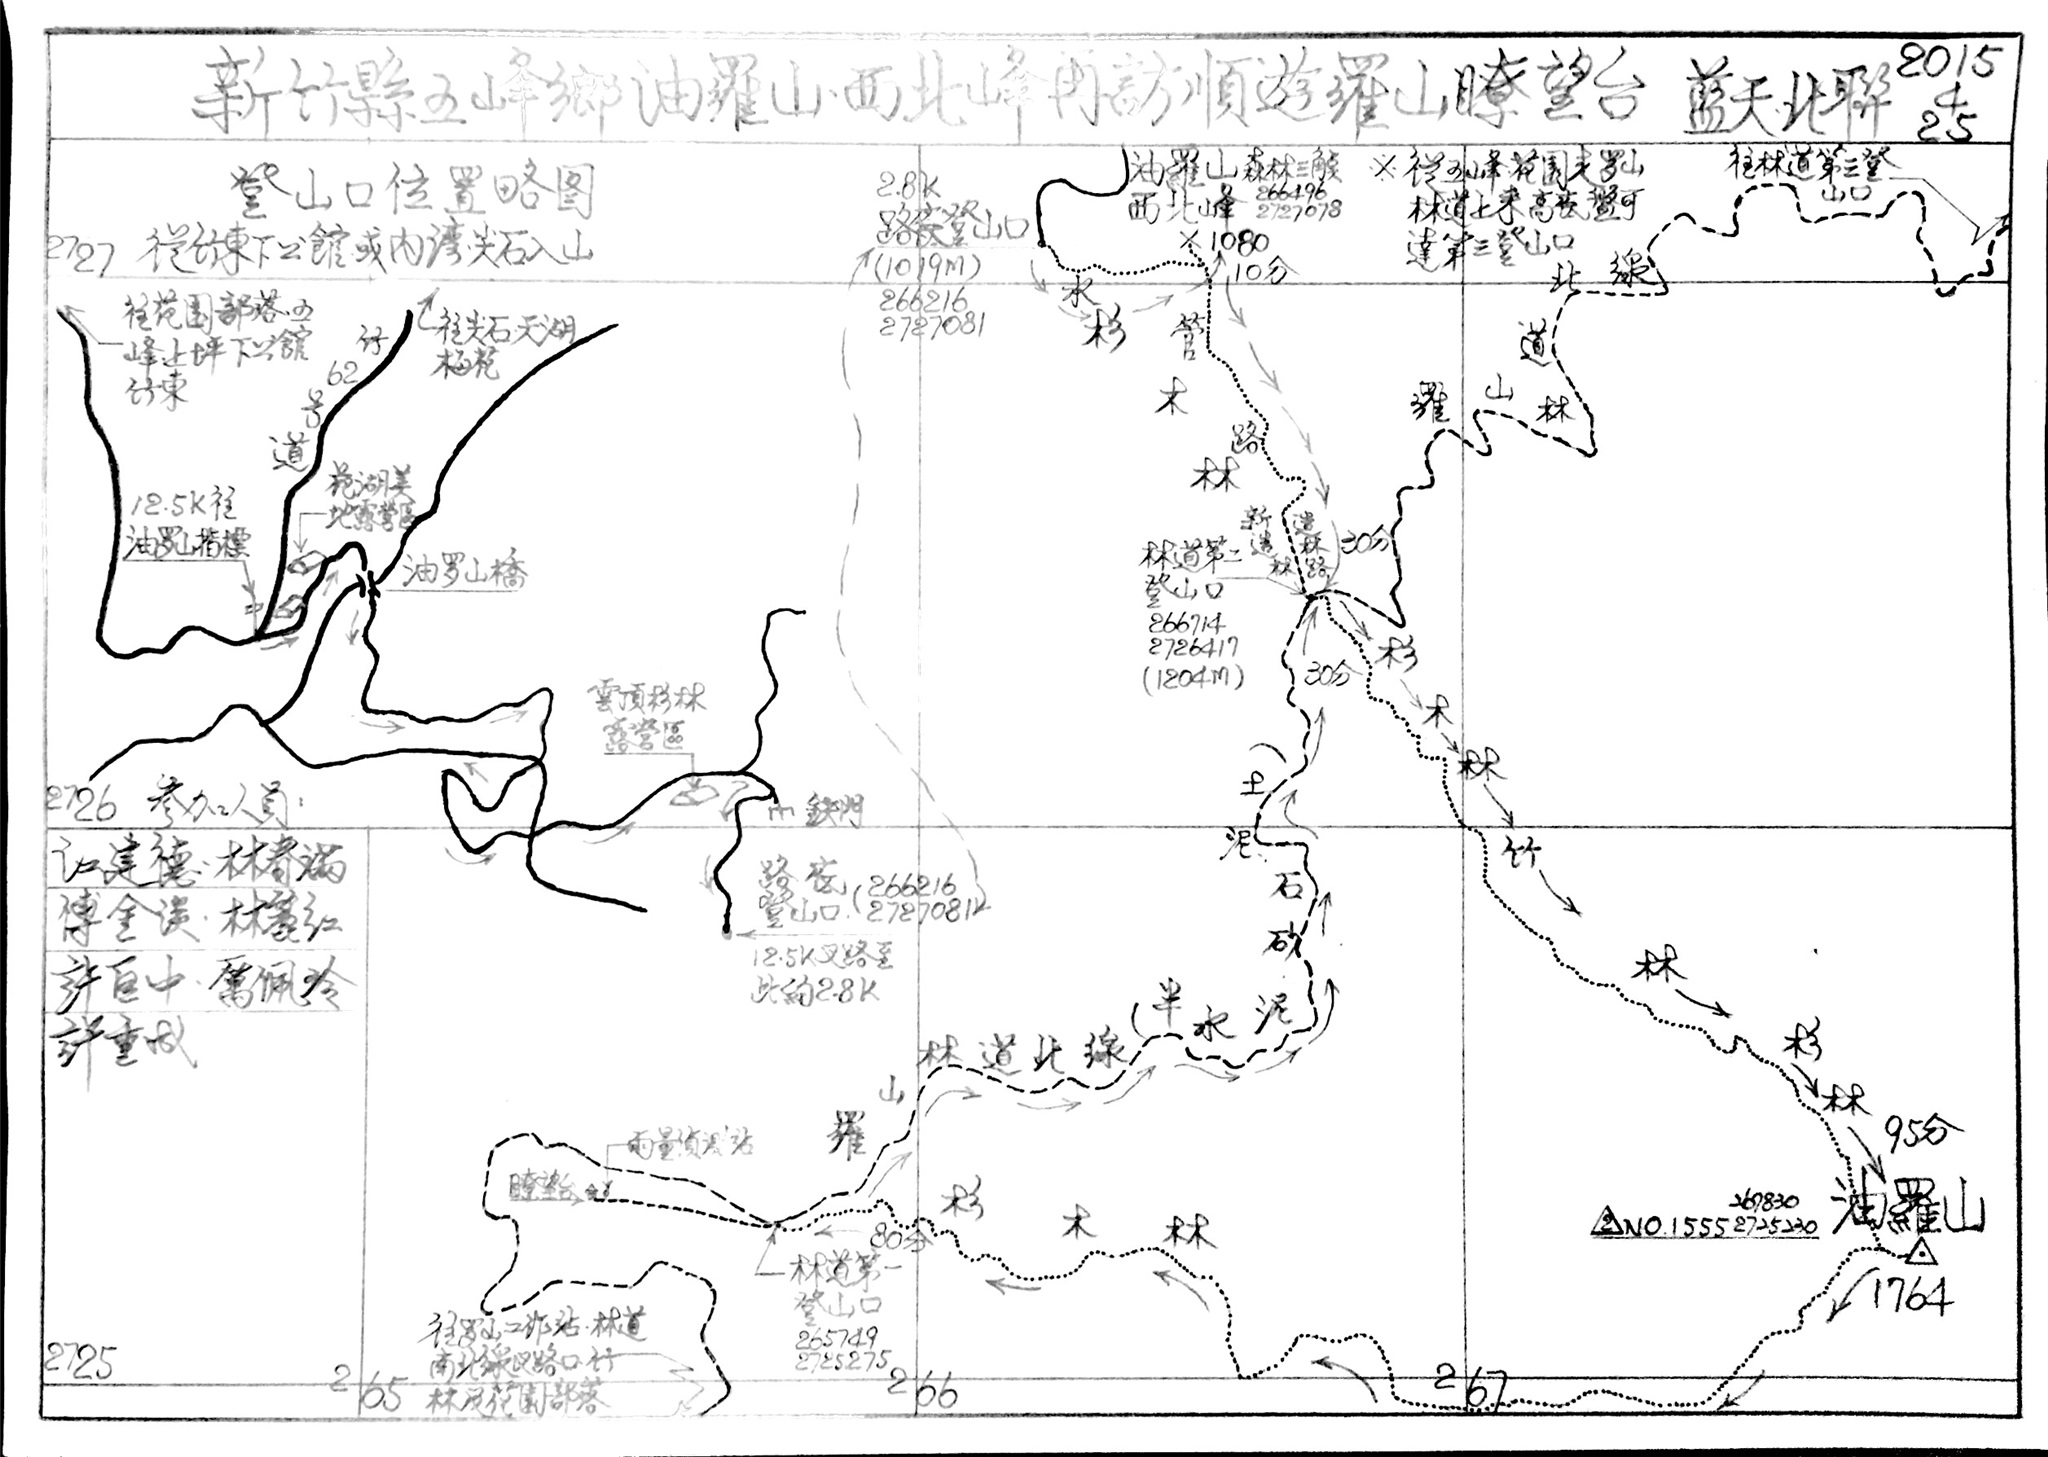 新竹縣五峰鄉油羅山·西北峰再訪順遊羅山瞭望台 藍天北聯 2015 4 25
登山口位置略图
2727 從竹東下公館或內湾尖石入山
往花園部落·五
峰上坪下公館
竹東
竹
62
号
道
往尖石天湖
梅花
12.5K往
油罗山指標
露營區
油罗山橋
雲頂杉林
露營區
鉄門
路底
登山口
(266216
2727081)
12.5K叉路至
此約2.8K
2.8K
路底登山口
(1019m)
266216
2727081
油羅山
西北峰
森林三角
266496
2727078
※1080
10分
※從五峰花園走罗山
林道上來高底盤可
達第三登山口
往林道第三登
山口
水
管
路
杉
木
林
羅山林道北線
新造林
造林路
30分
林道第二
登山口
266714
2726417
(1204m)
30分
杉
木
林
竹
林
杉
林
95分
油羅山
1764
NO.1555
267830
2725230
羅山林道北線
(半水泥
砂石泥土)
雨量偵測站
瞭望台
80分
杉
木
林
林道第一
登山口
265749
2725275
往罗山工作站·林道
南北線叉路口·竹
林及花園部落
2726 參加人員:
江建德·林春滿
傅金淡·林
許巨中·厲佩玲
許重成
2725
265
266
267